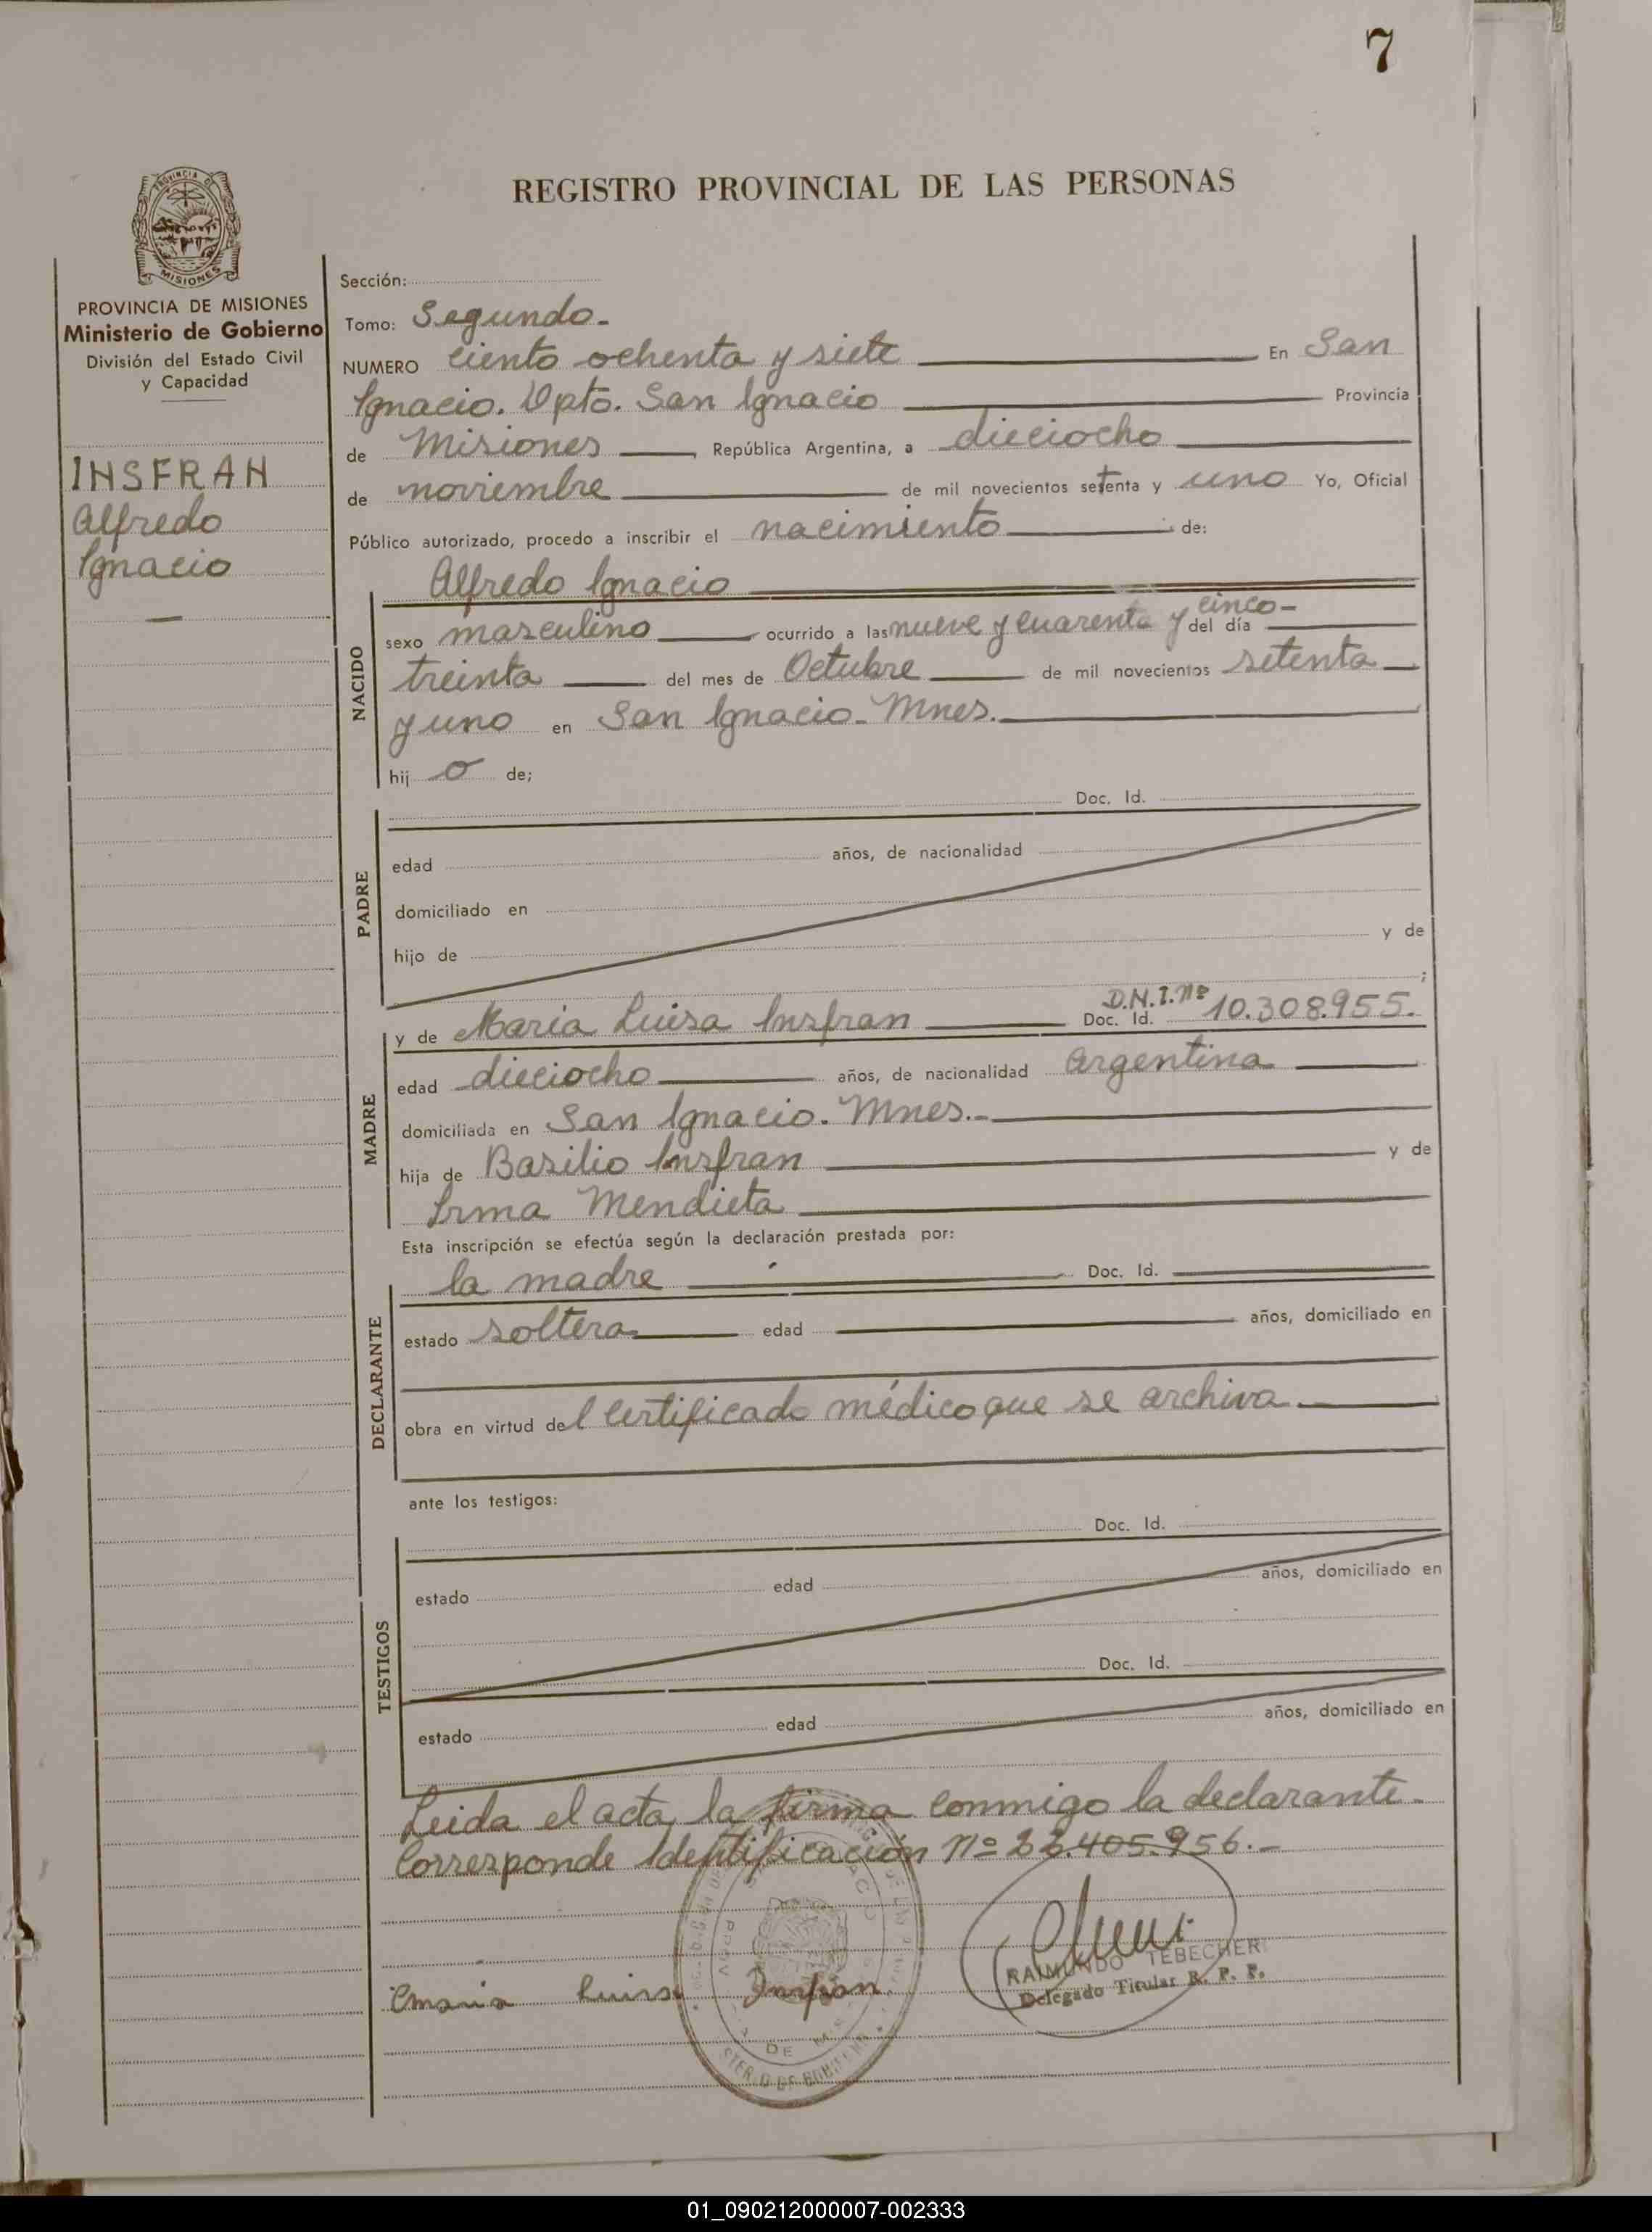 7
REGISTRO PROVINCIAL DE LAS PERSONAS
PROVINCIA DE
MISIONES
PROVINCIA DE MISIONES
Ministerio de Gobierno
División del Estado Civil
y Capacidad
INSFRAN
Alfredo
Ignacio
Sección:
Tomo: Segundo.-
NUMERO ciento ochenta y siete En San
Ignacio. Dpto. San Ignacio Provincia
de Misiones República Argentina, a dieciocho
de noviembre de mil novecientos setenta y uno Yo, Oficial
Público autorizado, procedo a inscribir el nacimiento de:
Alfredo Ignacio
NACIDO
sexo masculino ocurrido a las nueve y cuarenta y cinco- del día
treinta del mes de Octubre de mil novecientos setenta
y uno en San Ignacio-Mnes.
hij o de;
PADRE
Doc. Id.
edad años, de nacionalidad
domiciliado en
hijo de y de
;
MADRE
y de Maria Luisa Insfran Doc. Id. D.N.I.Nº 10.308.955.
edad dieciocho años, de nacionalidad Argentina
domiciliada en San Ignacio. Mnes.-
hija de Basilio Insfran y de
Irma Mendieta
Esta inscripción se efectúa según la declaración prestada por:
DECLARANTE
la madre Doc. Id.
estado soltera edad años, domiciliado en
obra en virtud del Certificado médico que se archiva
ante los testigos:
TESTIGOS
Doc. Id.
estado edad años, domiciliado en
Doc. Id.
estado edad años, domiciliado en
Leida el acta, la firma conmigo la declarante.
Corresponde Identificación Nº 22.405.956.-
Maria Luisa Insfran
RAIMUNDO TEBECHERI
Delegado Titular R. P. P.
DE
01_090212000007-002333